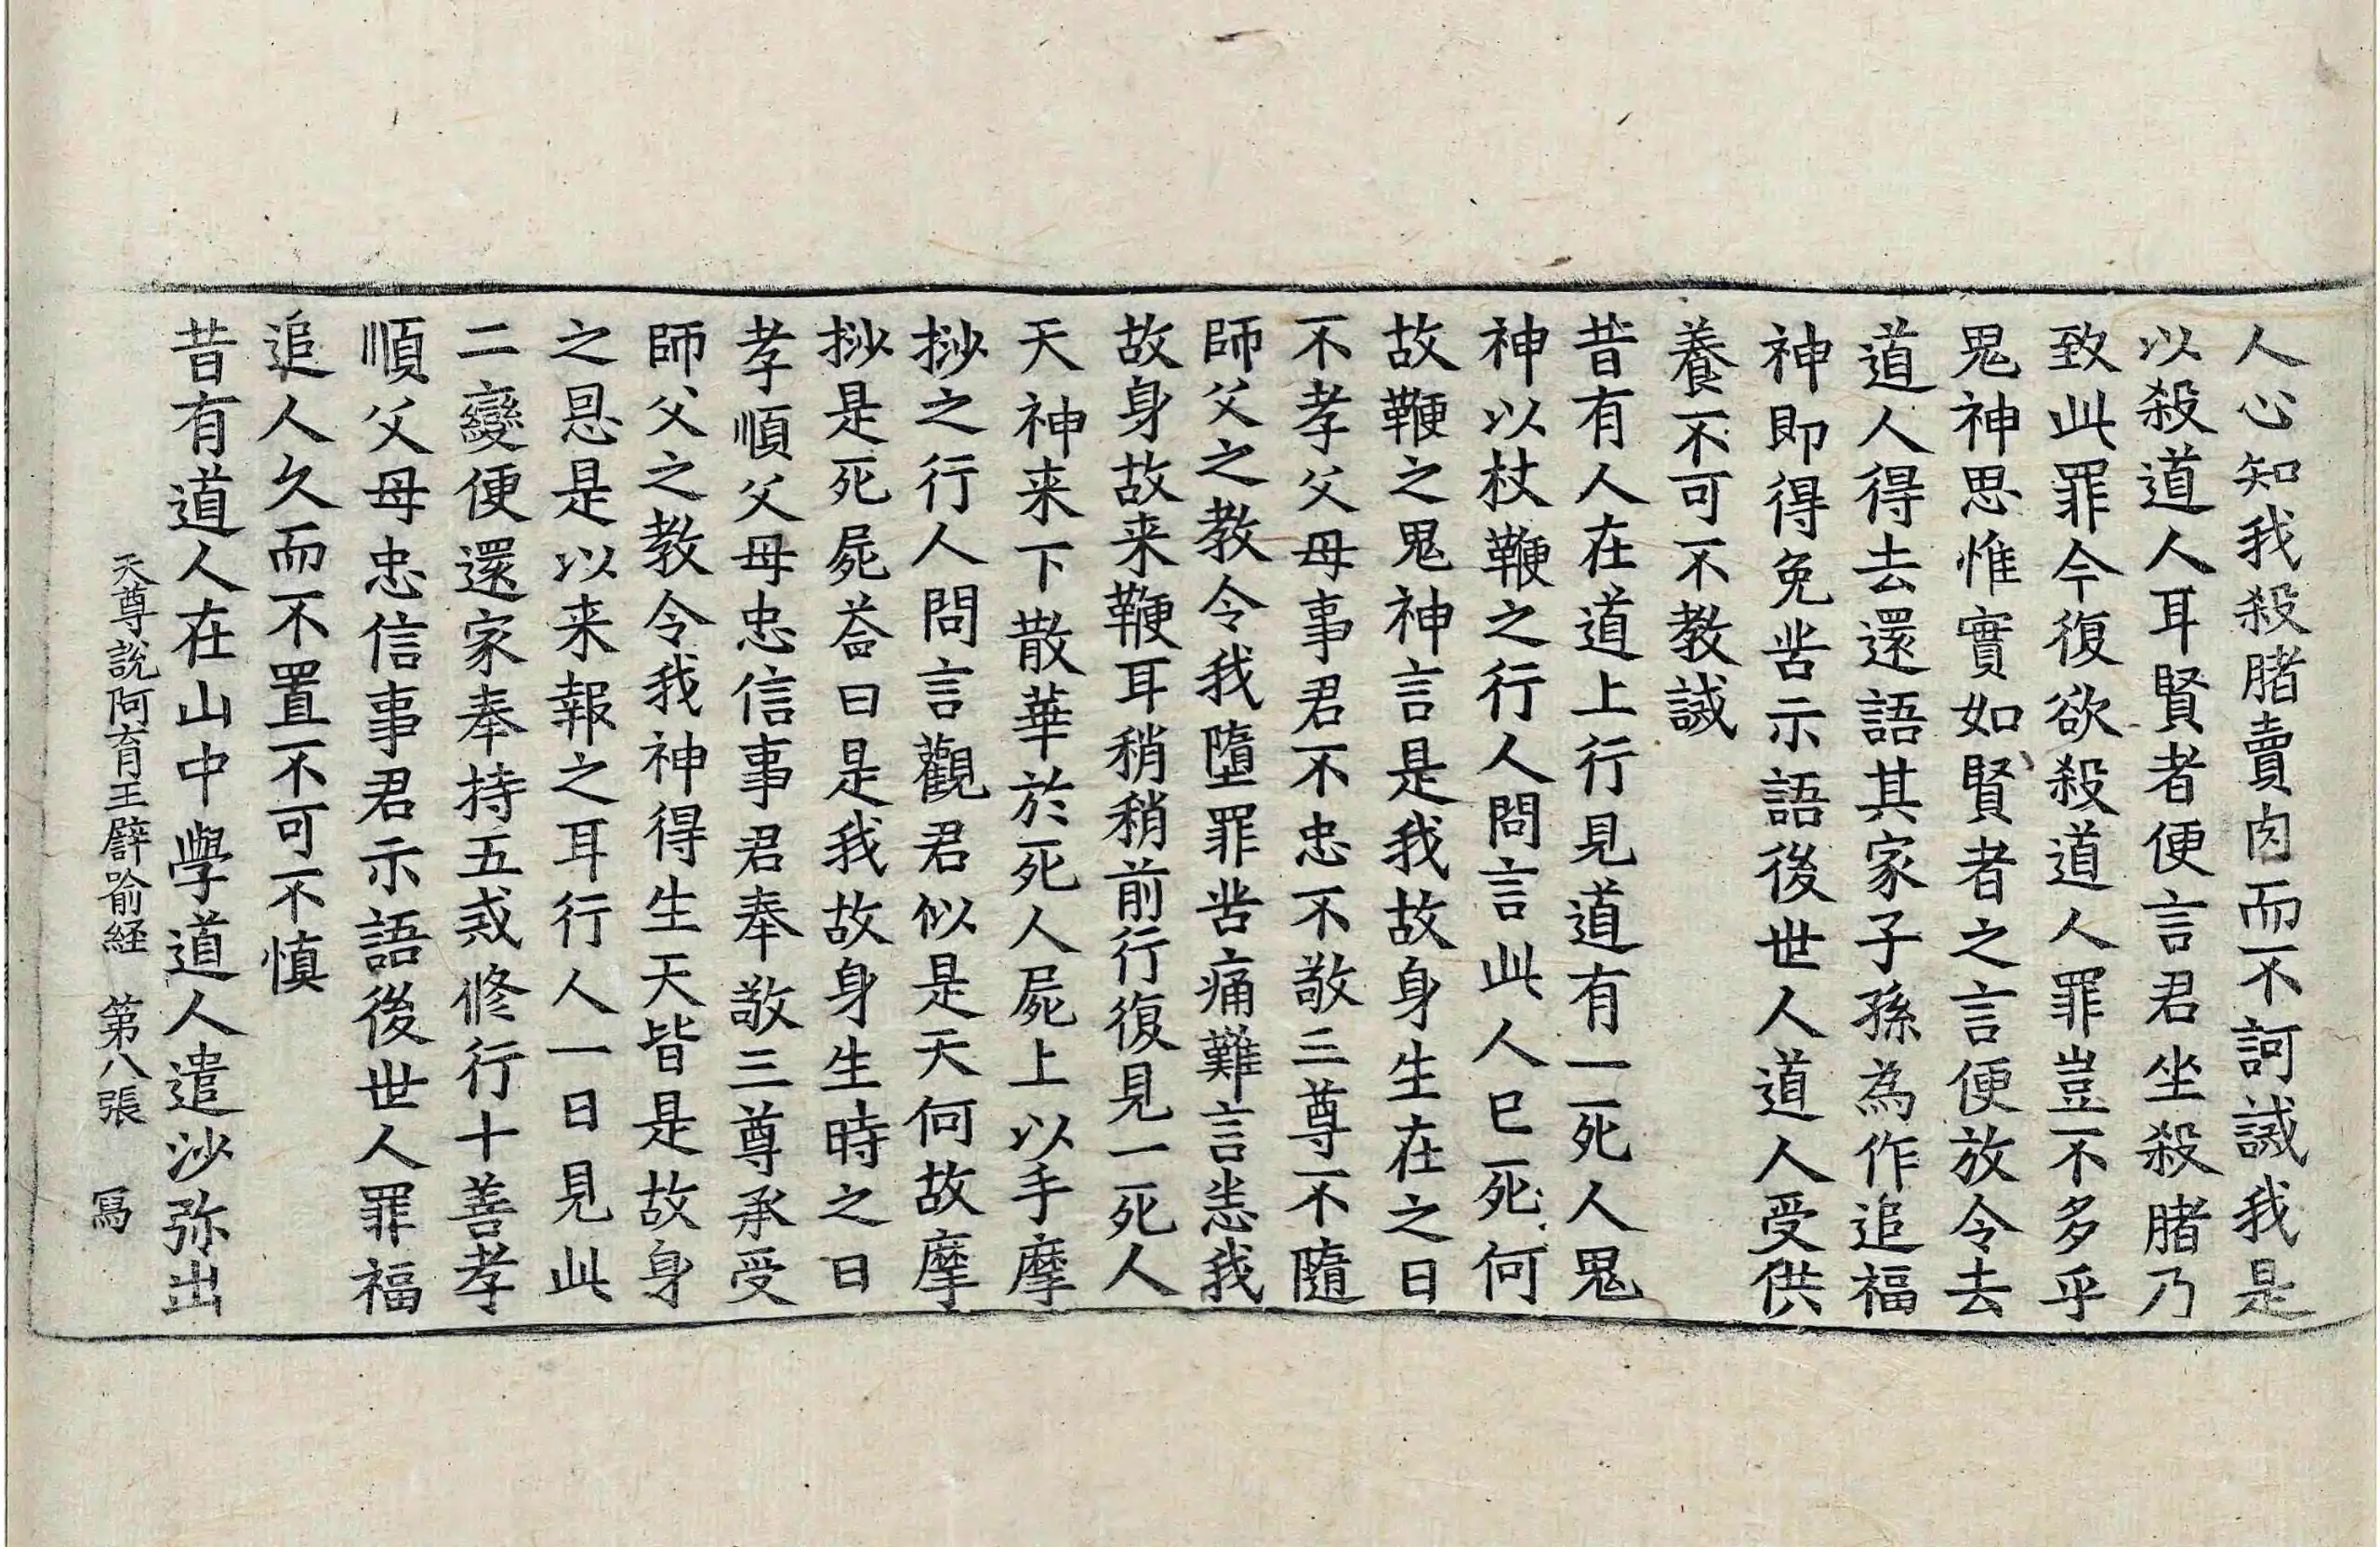 人心知我殺賭賣肉而不訶誡我是
以殺道人耳賢者便言君坐殺賭乃
致此罪今復欲殺道人罪豈不多乎
鬼神思惟實如賢者之言便放令去
道人得去還語其家子孫為作追福
神即得免苦示語後世人道人受供
養不可不教誡
昔有人在道上行見道有一死人鬼
神以杖鞭之行人問言此人已死何
故鞭之鬼神言是我故身生在之日
不孝父母事君不忠不敬三尊不隨
師父之教令我墮罪苦痛難言恚我
故身故来鞭耳稍稍前行復見一死人
天神来下散華於死人屍上以手摩
挱之行人問言觀君似是天何故摩
挱是死屍荅曰是我故身生時之日
孝順父母忠信事君奉敬三尊承受
師父之教令我神得生天皆是故身
之恩是以来報之耳行人一日見此
二變便還家奉持五戒修行十善孝
順父母忠信事君示語後世人罪福
追人久而不置不可不慎
昔有道人在山中學道人遣沙弥出
天尊說阿育王譬喻経 第八張 寫